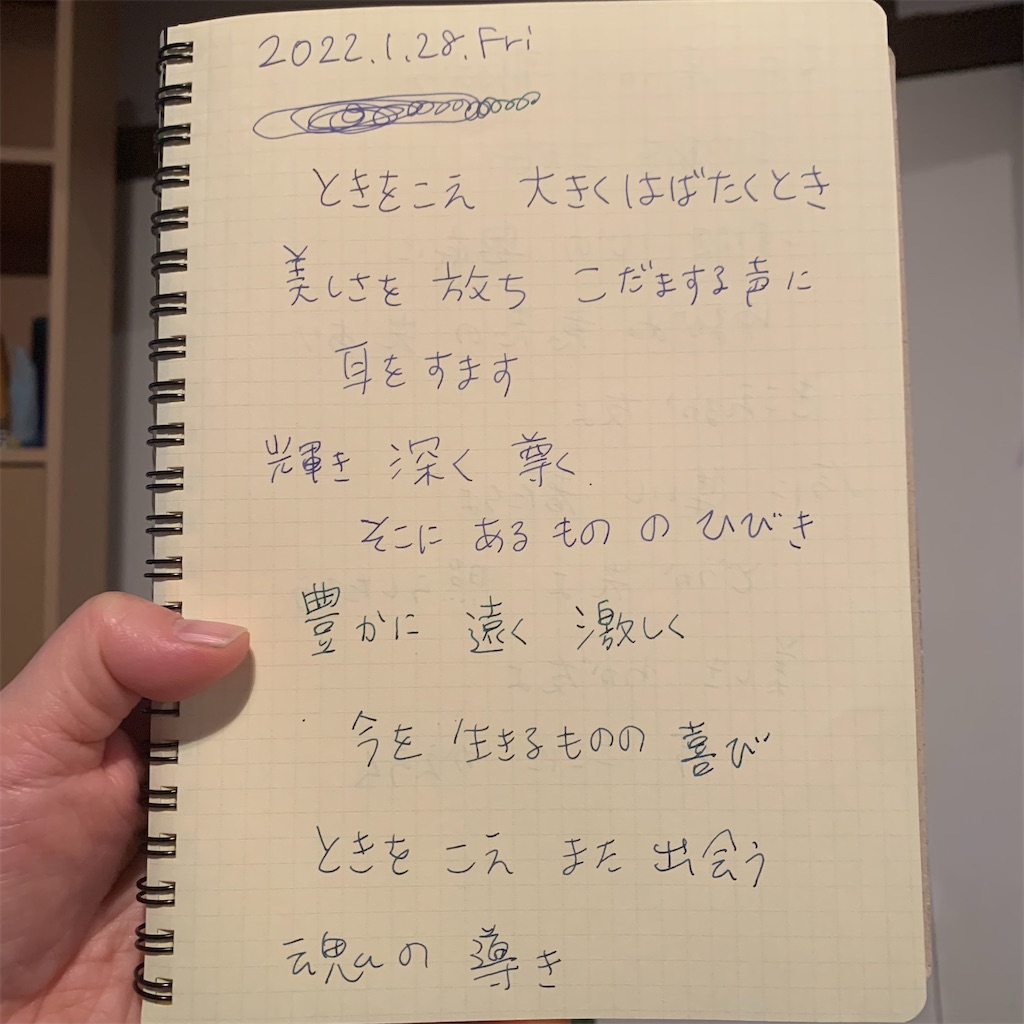 2022.1.28.Fri
ときをこえ 大きくはばたくとき
美しさを 放ち こだまする声に
耳をすます
輝き 深く 尊く.
そこに あるもの の ひびき
豊かに 遠く 激しく
今を 生きるものの 喜び
ときを こえ また 出会う
魂の 導き